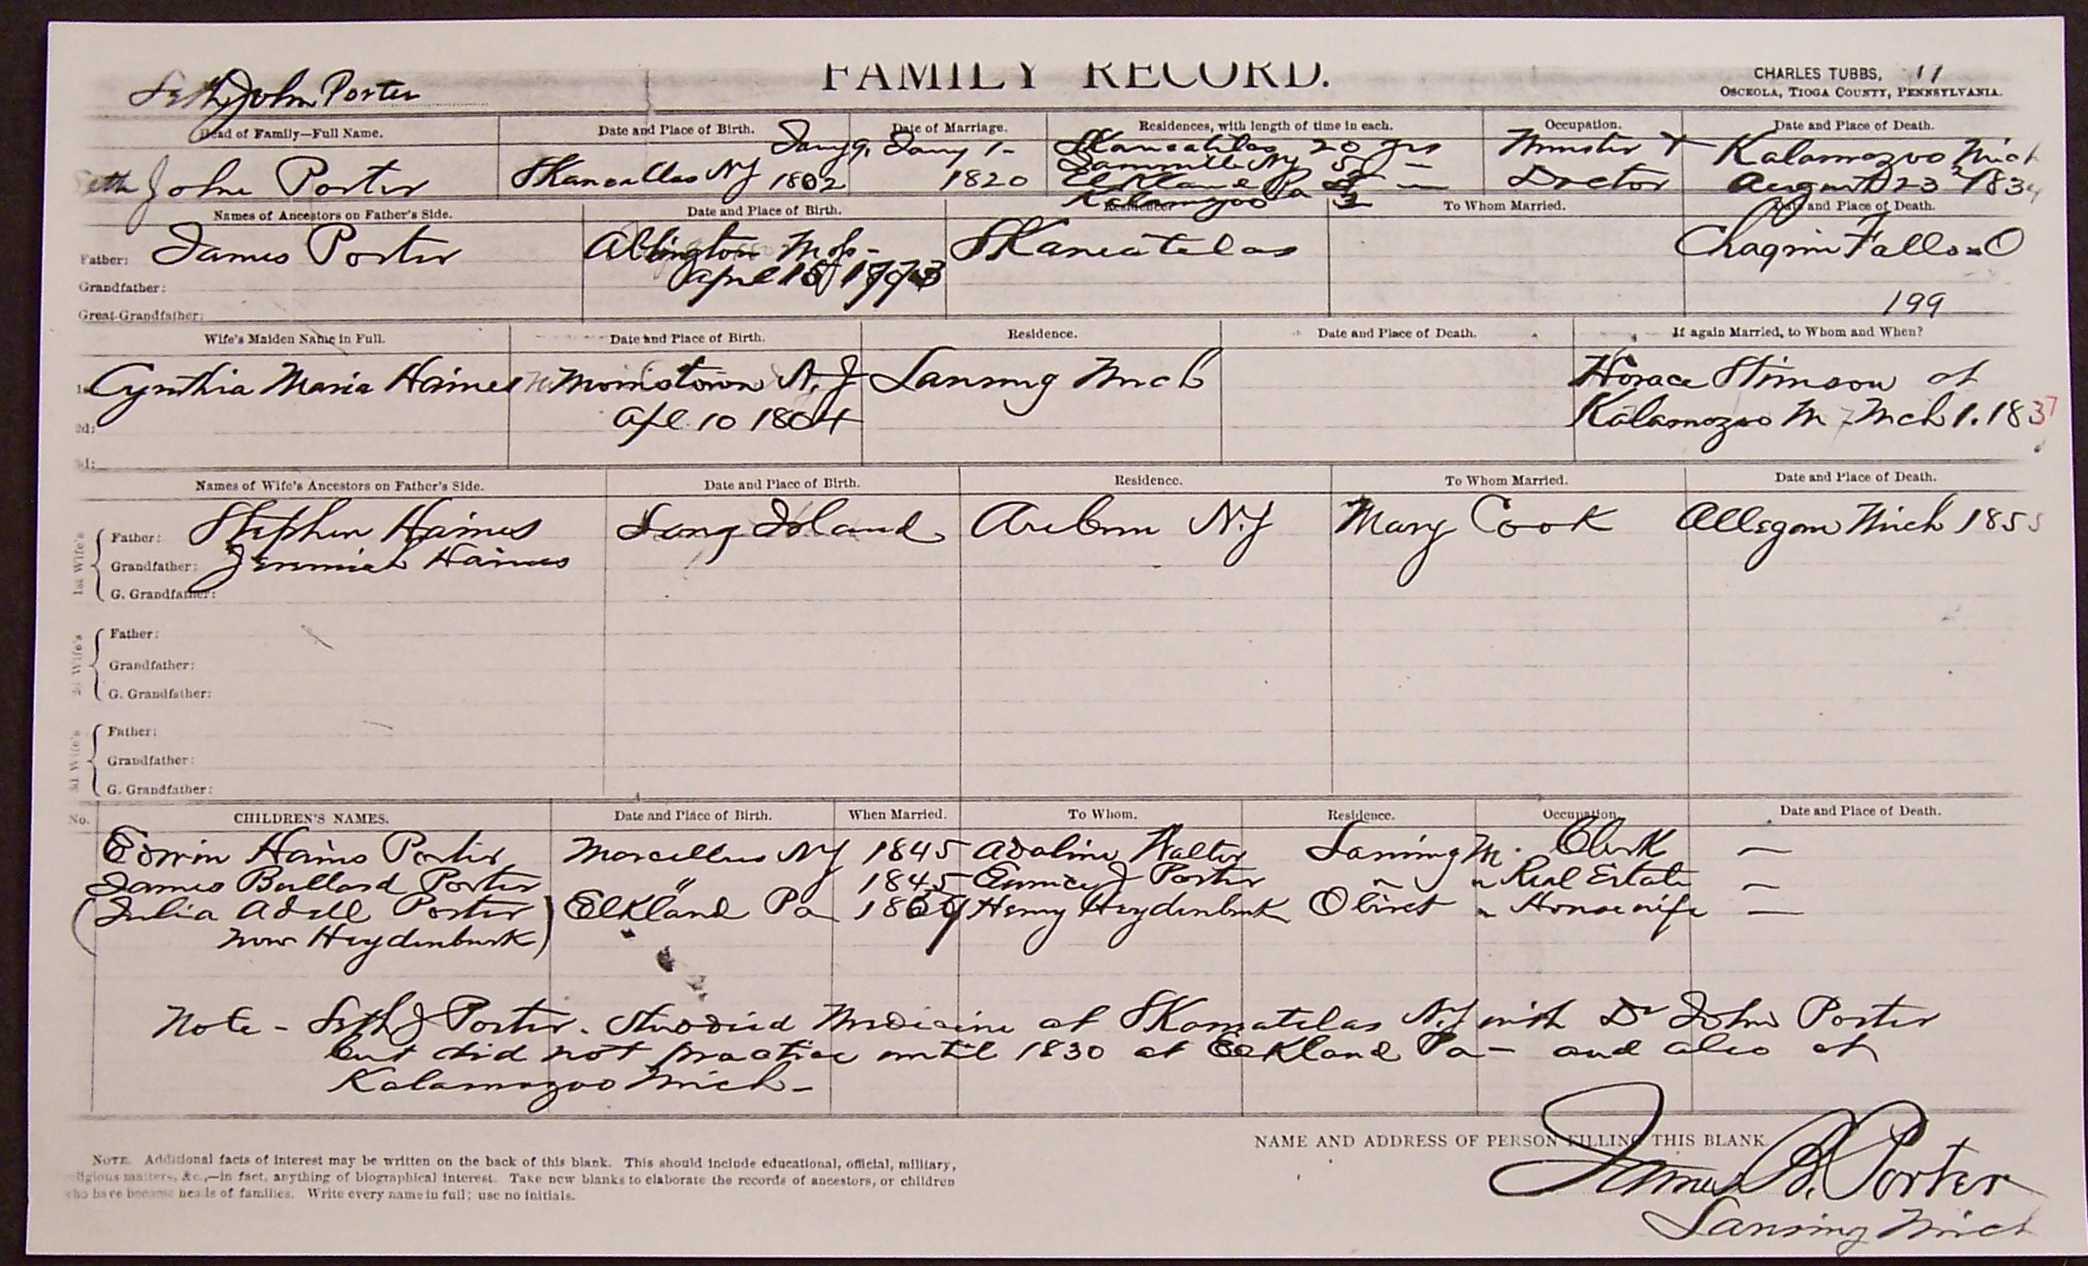 FAMILY RECORD.
CHARLES TUBBS, 11
OSCEOLA, TIOGA COUNTY, PENNSYLVANIA.
Seth John Porter
Head of Family—Full Name. Date and Place of Birth. Date of Marriage. Residences, with length of time in each. Occupation. Date and Place of Death.
Jany 9, Jany 1- Skaneatilas 20 yrs Minister + Kalamazoo Mich
Seth John Porter Skaneatlas NY 1802 1820 NY 5 — Doctor August 23 1834
Elkland Pa —
Kalamazoo
Names of Ancestors on Father's Side. Date and Place of Birth. Residence. To Whom Married. Date and Place of Death.
Father: James Porter Abington Mass- Skaneatelas Chagrin Falls O
April 15 1773
Grandfather:
199
Great-Grandfather:
Wife's Maiden Name in Full. Date and Place of Birth. Residence. Date and Place of Death. If again Married, to Whom and When?
1st: Cynthia Maria Haines Morristown N.J Lansing Mich Horace Stimson at
2d: Apl 10 1804 Kalamazoo M Mch 1. 1837
3d:
Names of Wife's Ancestors on Father's Side. Date and Place of Birth. Residence. To Whom Married. Date and Place of Death.
1st Wife's
Father: Stephen Haines Long Island Auburn N.Y Mary Cook Allegan Mich 1855
Grandfather: Jeremiah Haines
G. Grandfather:
2d Wife's
Father:
Grandfather:
G. Grandfather:
3d Wife's
Father:
Grandfather:
G. Grandfather:
No. CHILDREN'S NAMES. Date and Place of Birth. When Married. To Whom. Residence. Occupation. Date and Place of Death.
Edwin Haines Porter Marcellus NY 1845 Adaline Walter Lansing M. Clerk —
James Bullard Porter " 1845 Eunice J Porter " " Real Estate —
(Julia Adell Porter Elkland Pa Henry Heydenburk Olivet " Housewife —
now Heydenburk)
Note - Seth J Porter. studied Medicine at Skaneatelas N.Y with Dr John Porter
but did not practice until 1830 at Elkland Pa- and also at
Kalamazoo Mich-
NAME AND ADDRESS OF PERSON FILLING THIS BLANK
James B. Porter
Lansing Mich
NOTE. Additional facts of interest may be written on the back of this blank. This should include educational, official, military,
religious matters, &c.,—in fact, anything of biographical interest. Take new blanks to elaborate the records of ancestors, or children
who have become heads of families. Write every name in full; use no initials.